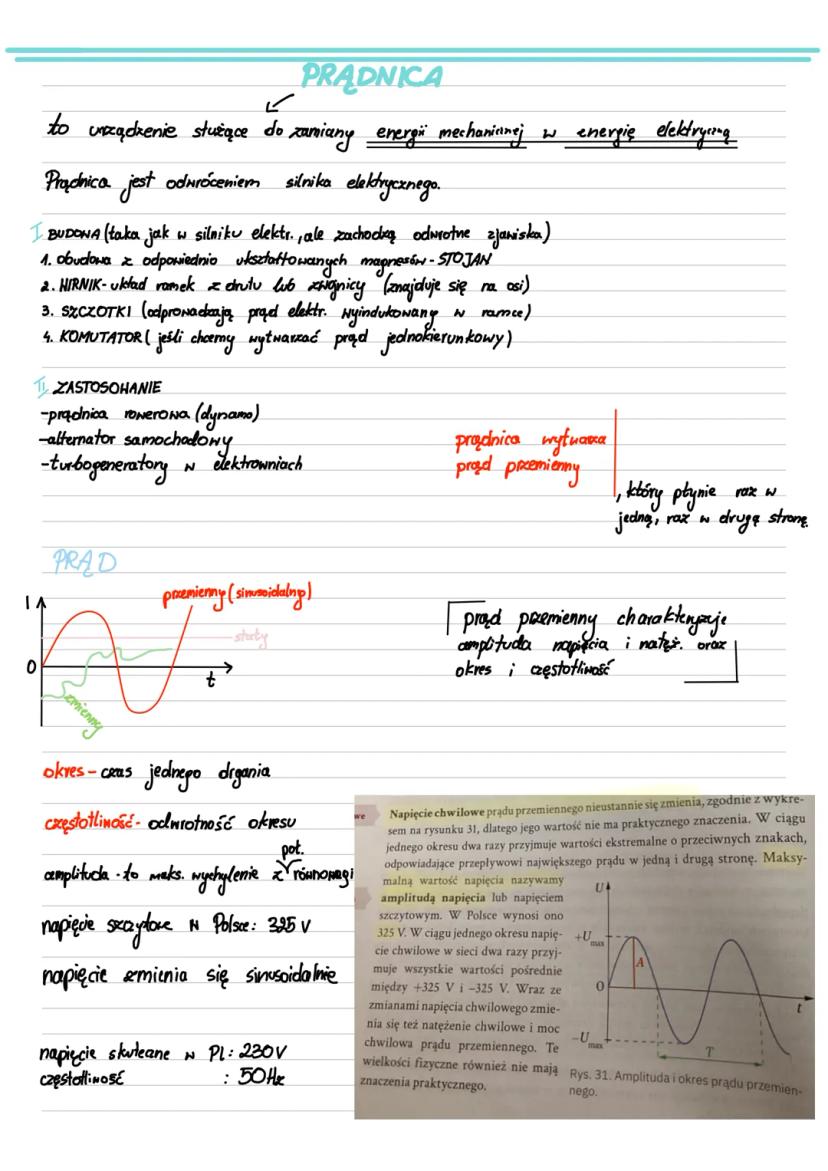 PRĄDNICA
to urządzenie służące do zamiany energii mechanicznej w energię elektryczną
Prądnica jest odwróceniem silnika elektrycznego.
I BUDOWA (taka jak w silniku elektr., ale zachodzą odwrotne zjawiska)
1. obudowa z odpowiednio ukształtowanych magnesów - STOJAN
2. WIRNIK - układ ramek z drutu lub zwojnicy (znajduje się na osi)
3. SZCZOTKI (odprowadzają prąd elektr. wyindukowany w ramce)
4. KOMUTATOR (jeśli chcemy wytwarzać prąd jednokierunkowy)
II ZASTOSOWANIE
-prądnica rowerowa (dynamo)
-alternator samochodowy
-turbogeneratory w elektrowniach
prądnica wytwarza
prąd przemienny
, który płynie raz w
jedną, raz w drugą stronę
PRĄD
I
przemienny (sinusoidalny)
stały
0
t
zmienny
prąd przemienny charakteryzuje
amplituda napięcia i natęż. oraz
okres i częstotliwość
okres - czas jednego drgania
częstotliwość - odwrotność okresu
amplituda - to maks. wychylenie z pot. równowagi
napięcie szczytowe w Polsce: 325 V
napięcie zmienia się sinusoidalnie
napięcie skuteczne w PL: 230V
częstotliwość : 50Hz
we
Napięcie chwilowe prądu przemiennego nieustannie się zmienia, zgodnie z wykre-
sem na rysunku 31, dlatego jego wartość nie ma praktycznego znaczenia. W ciągu
jednego okresu dwa razy przyjmuje wartości ekstremalne o przeciwnych znakach,
odpowiadające przepływowi największego prądu w jedną i drugą stronę. Maksy-
malną wartość napięcia nazywamy
amplitudą napięcia lub napięciem
szczytowym. W Polsce wynosi ono
325 V. W ciągu jednego okresu napię-
cie chwilowe w sieci dwa razy przyj-
muje wszystkie wartości pośrednie
między +325 V i −325 V. Wraz ze
zmianami napięcia chwilowego zmie-
nia się też natężenie chwilowe i moc
chwilowa prądu przemiennego. Te
wielkości fizyczne również nie mają
znaczenia praktycznego.
U
+Umax
A
0
t
−Umax
T
Rys. 31. Amplituda i okres prądu przemien-
nego.